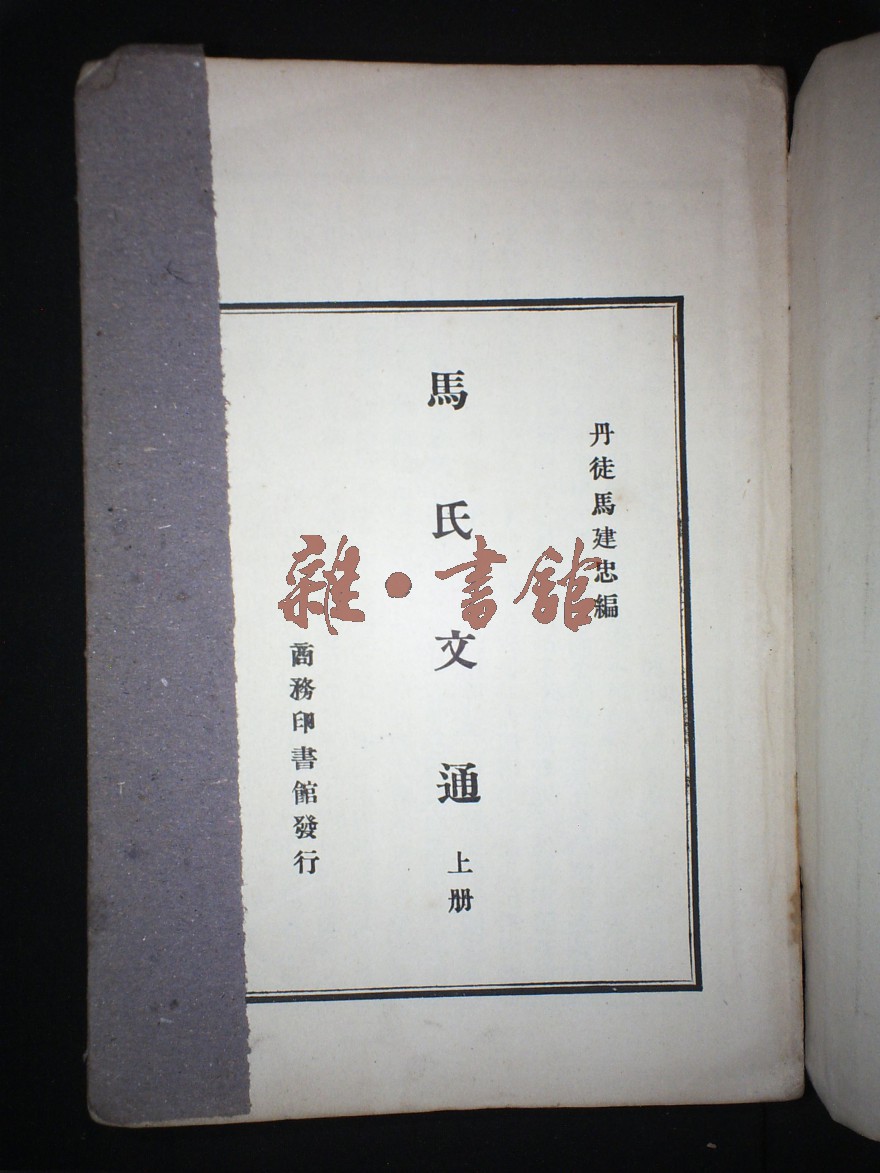 丹徒馬建忠編
馬氏文通
上册
商務印書館發行
雜·書館